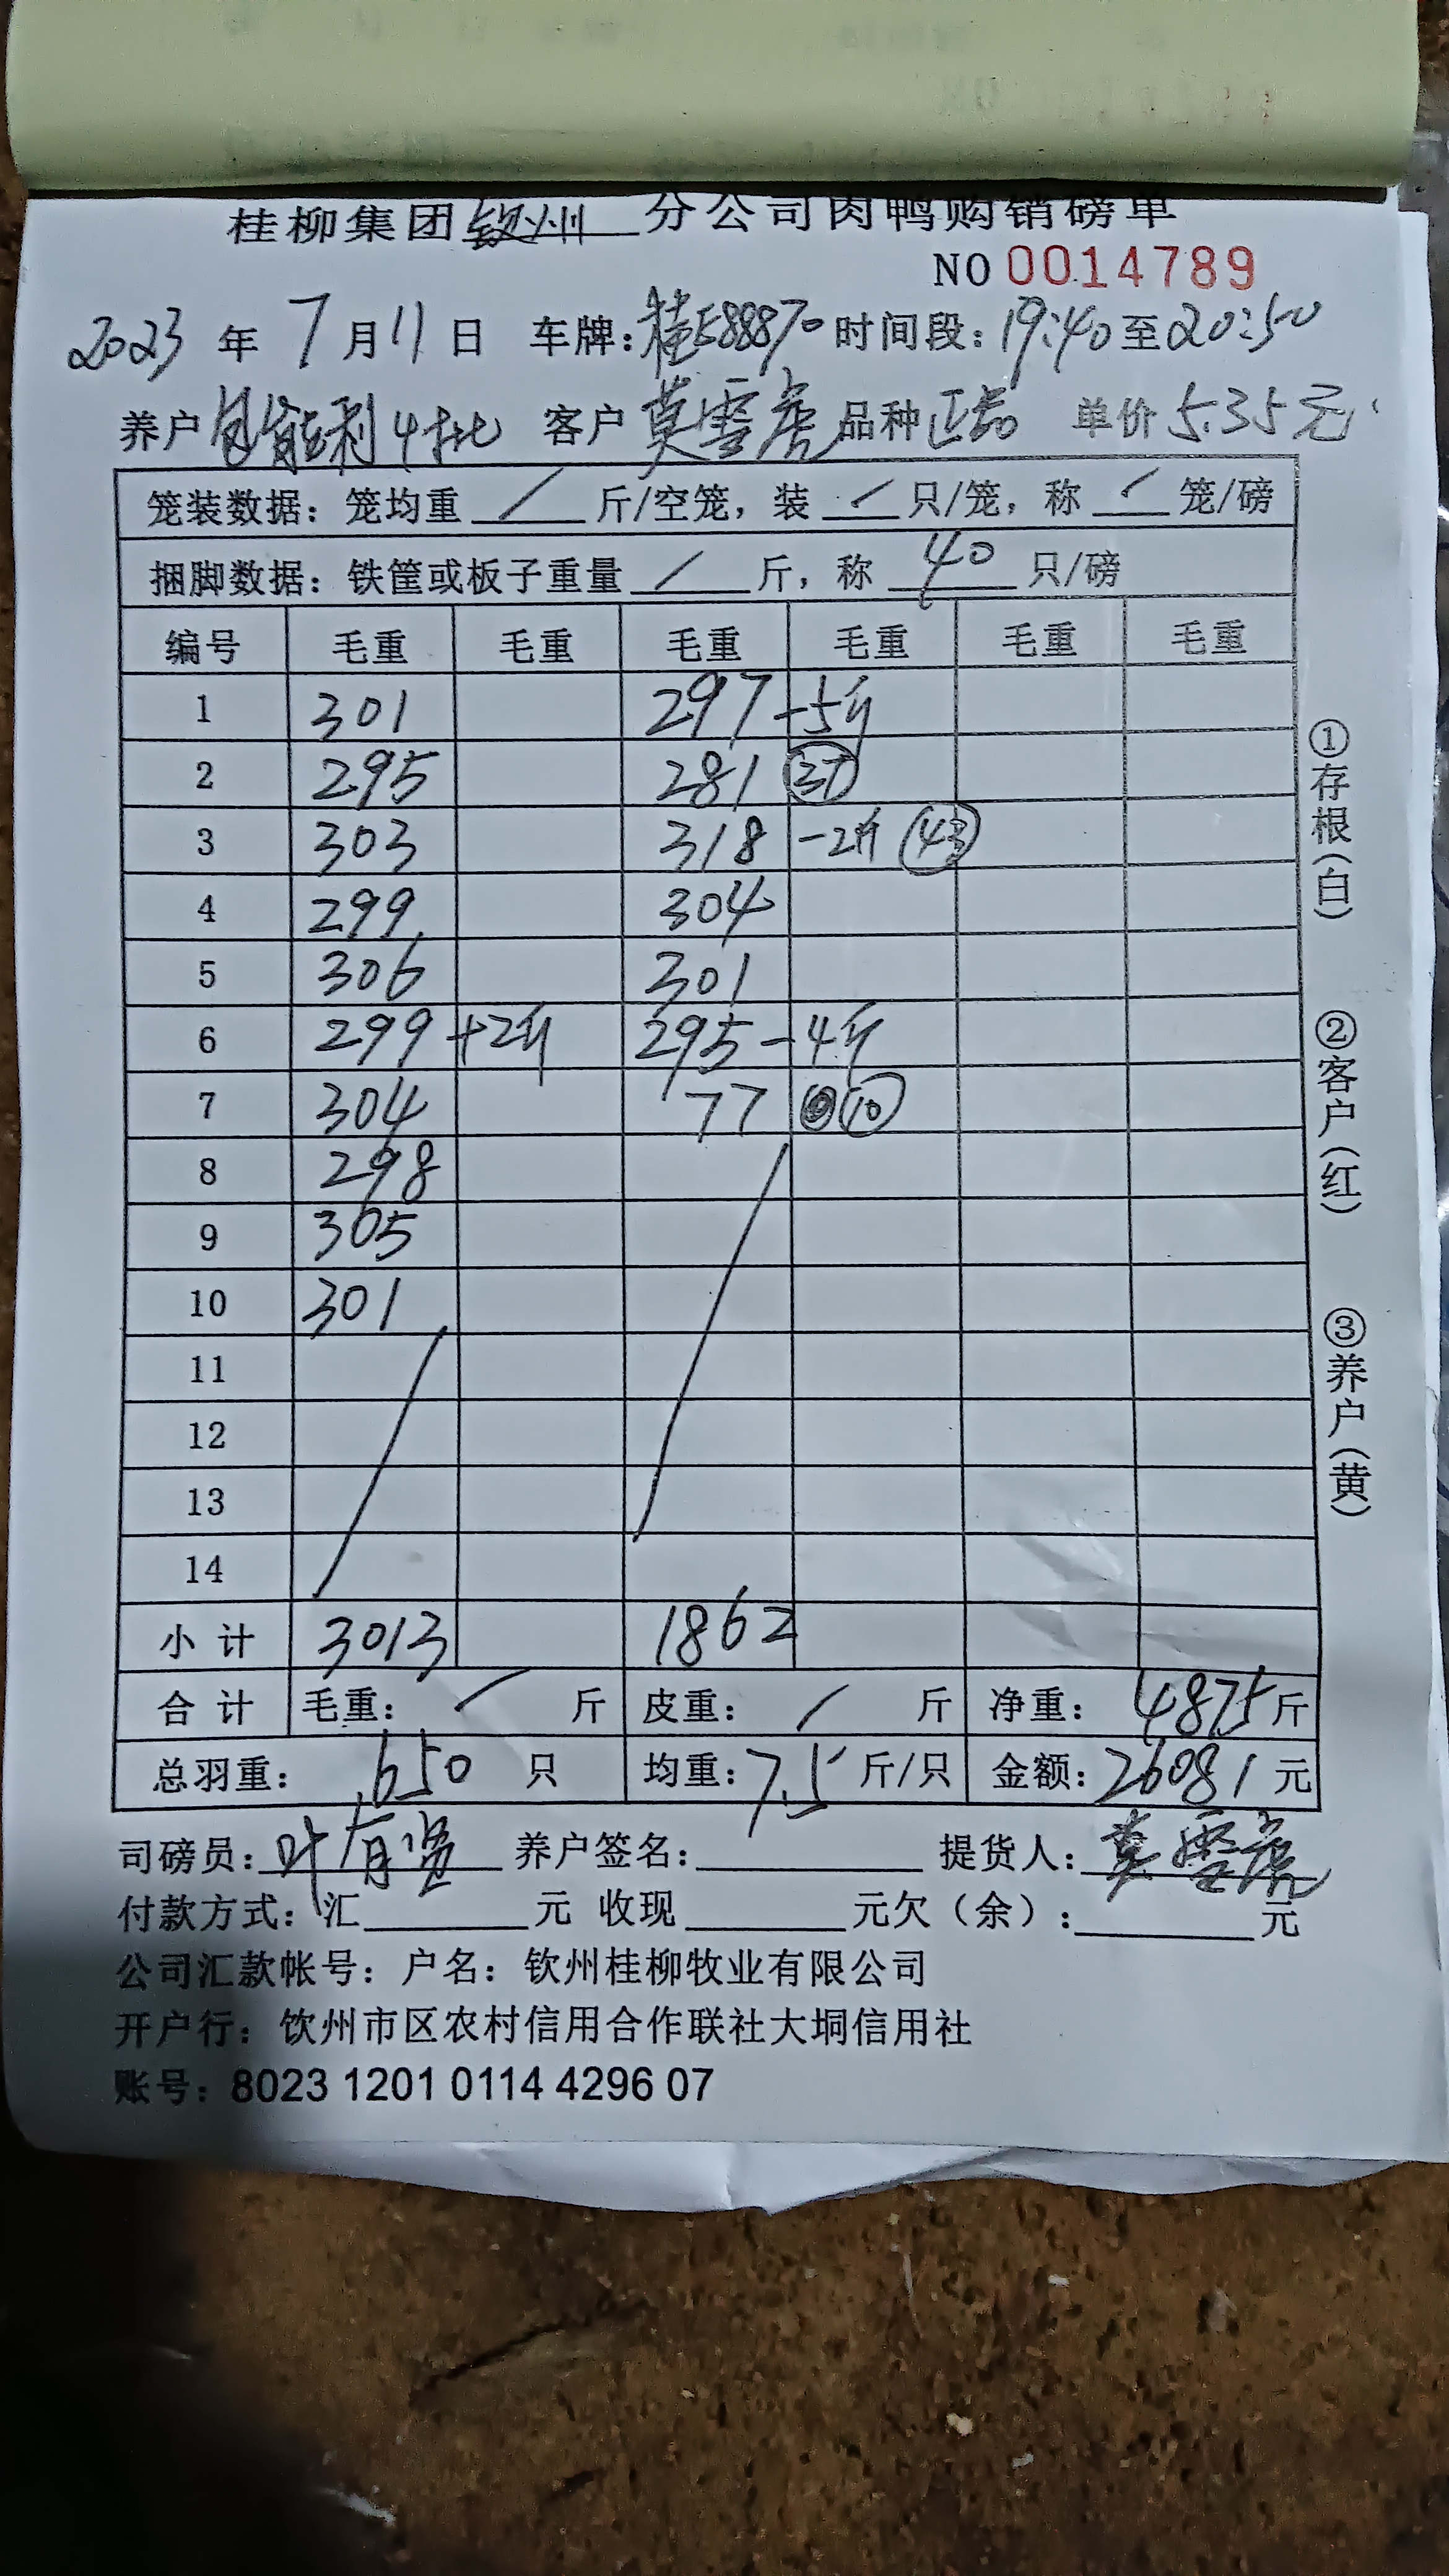 桂柳集团钦州分公司肉鸭购销磅单
NO 0014789
2023 年 7 月 11 日 车牌:桂E88870 时间段:19:40至20:50
养户 能利4批 客户 莫雪虎 品种 正品 单价 5.35元
笼装数据: 笼均重 / 斤/空笼, 装 / 只/笼, 称 / 笼/磅
捆脚数据: 铁筐或板子重量 / 斤, 称 40 只/磅
编号 毛重 毛重 毛重 毛重 毛重 毛重
1 301 297 -5斤
2 295 281 37
3 303 318 -2斤 43
4 299 304
5 306 301
6 299 +2斤 295 -4斤
7 304 77 10
8 298
9 305
10 301
11
12
13
14
小计 3013 1862
合计 毛重: / 斤 皮重: / 斤 净重: 4875斤
总羽重: 650 只 均重: 7.5 斤/只 金额: 26081 元
司磅员: 叶有 养户签名: 提货人: 莫雪虎
付款方式: 汇 元 收现 元欠(余): 元
公司汇款帐号: 户名: 钦州桂柳牧业有限公司
开户行: 钦州市区农村信用合作联社大垌信用社
账号: 8023 1201 0114 4296 07
①存根(白)
②客户(红)
③养户(黄)